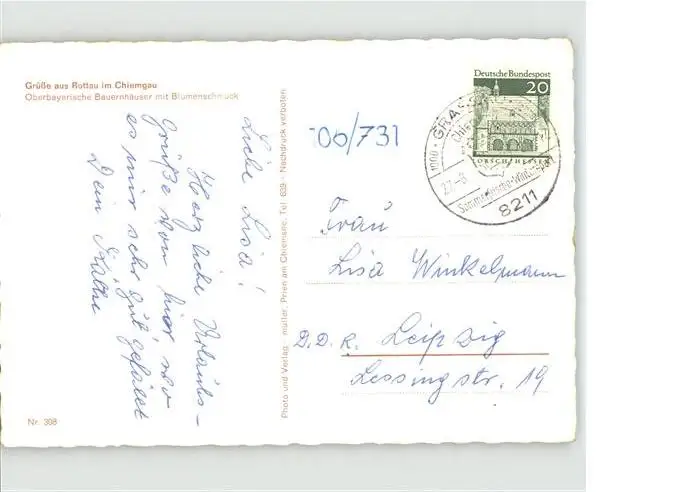 Grüße aus Rottau im Chiemgau
Oberbayerische Bauernhäuser mit Blumenschmuck
Liebe Lisa!
Herzliche Urlaubs-
grüße von hier, wo
es mir sehr gut gefällt
Dein Käthe
Nr. 398
Photo und Verlag: müller, Prien am Chiemsee, Tel. 639 - Nachdruck verboten
00/731
Deutsche Bundespost
20
LORSCH/HESSEN
GRASSAU
27.-8
Sommerfrische-Wintersport
8211
Frau
Lisa Winkelmann
D.D.R. Leipzig
Lessingstr. 19